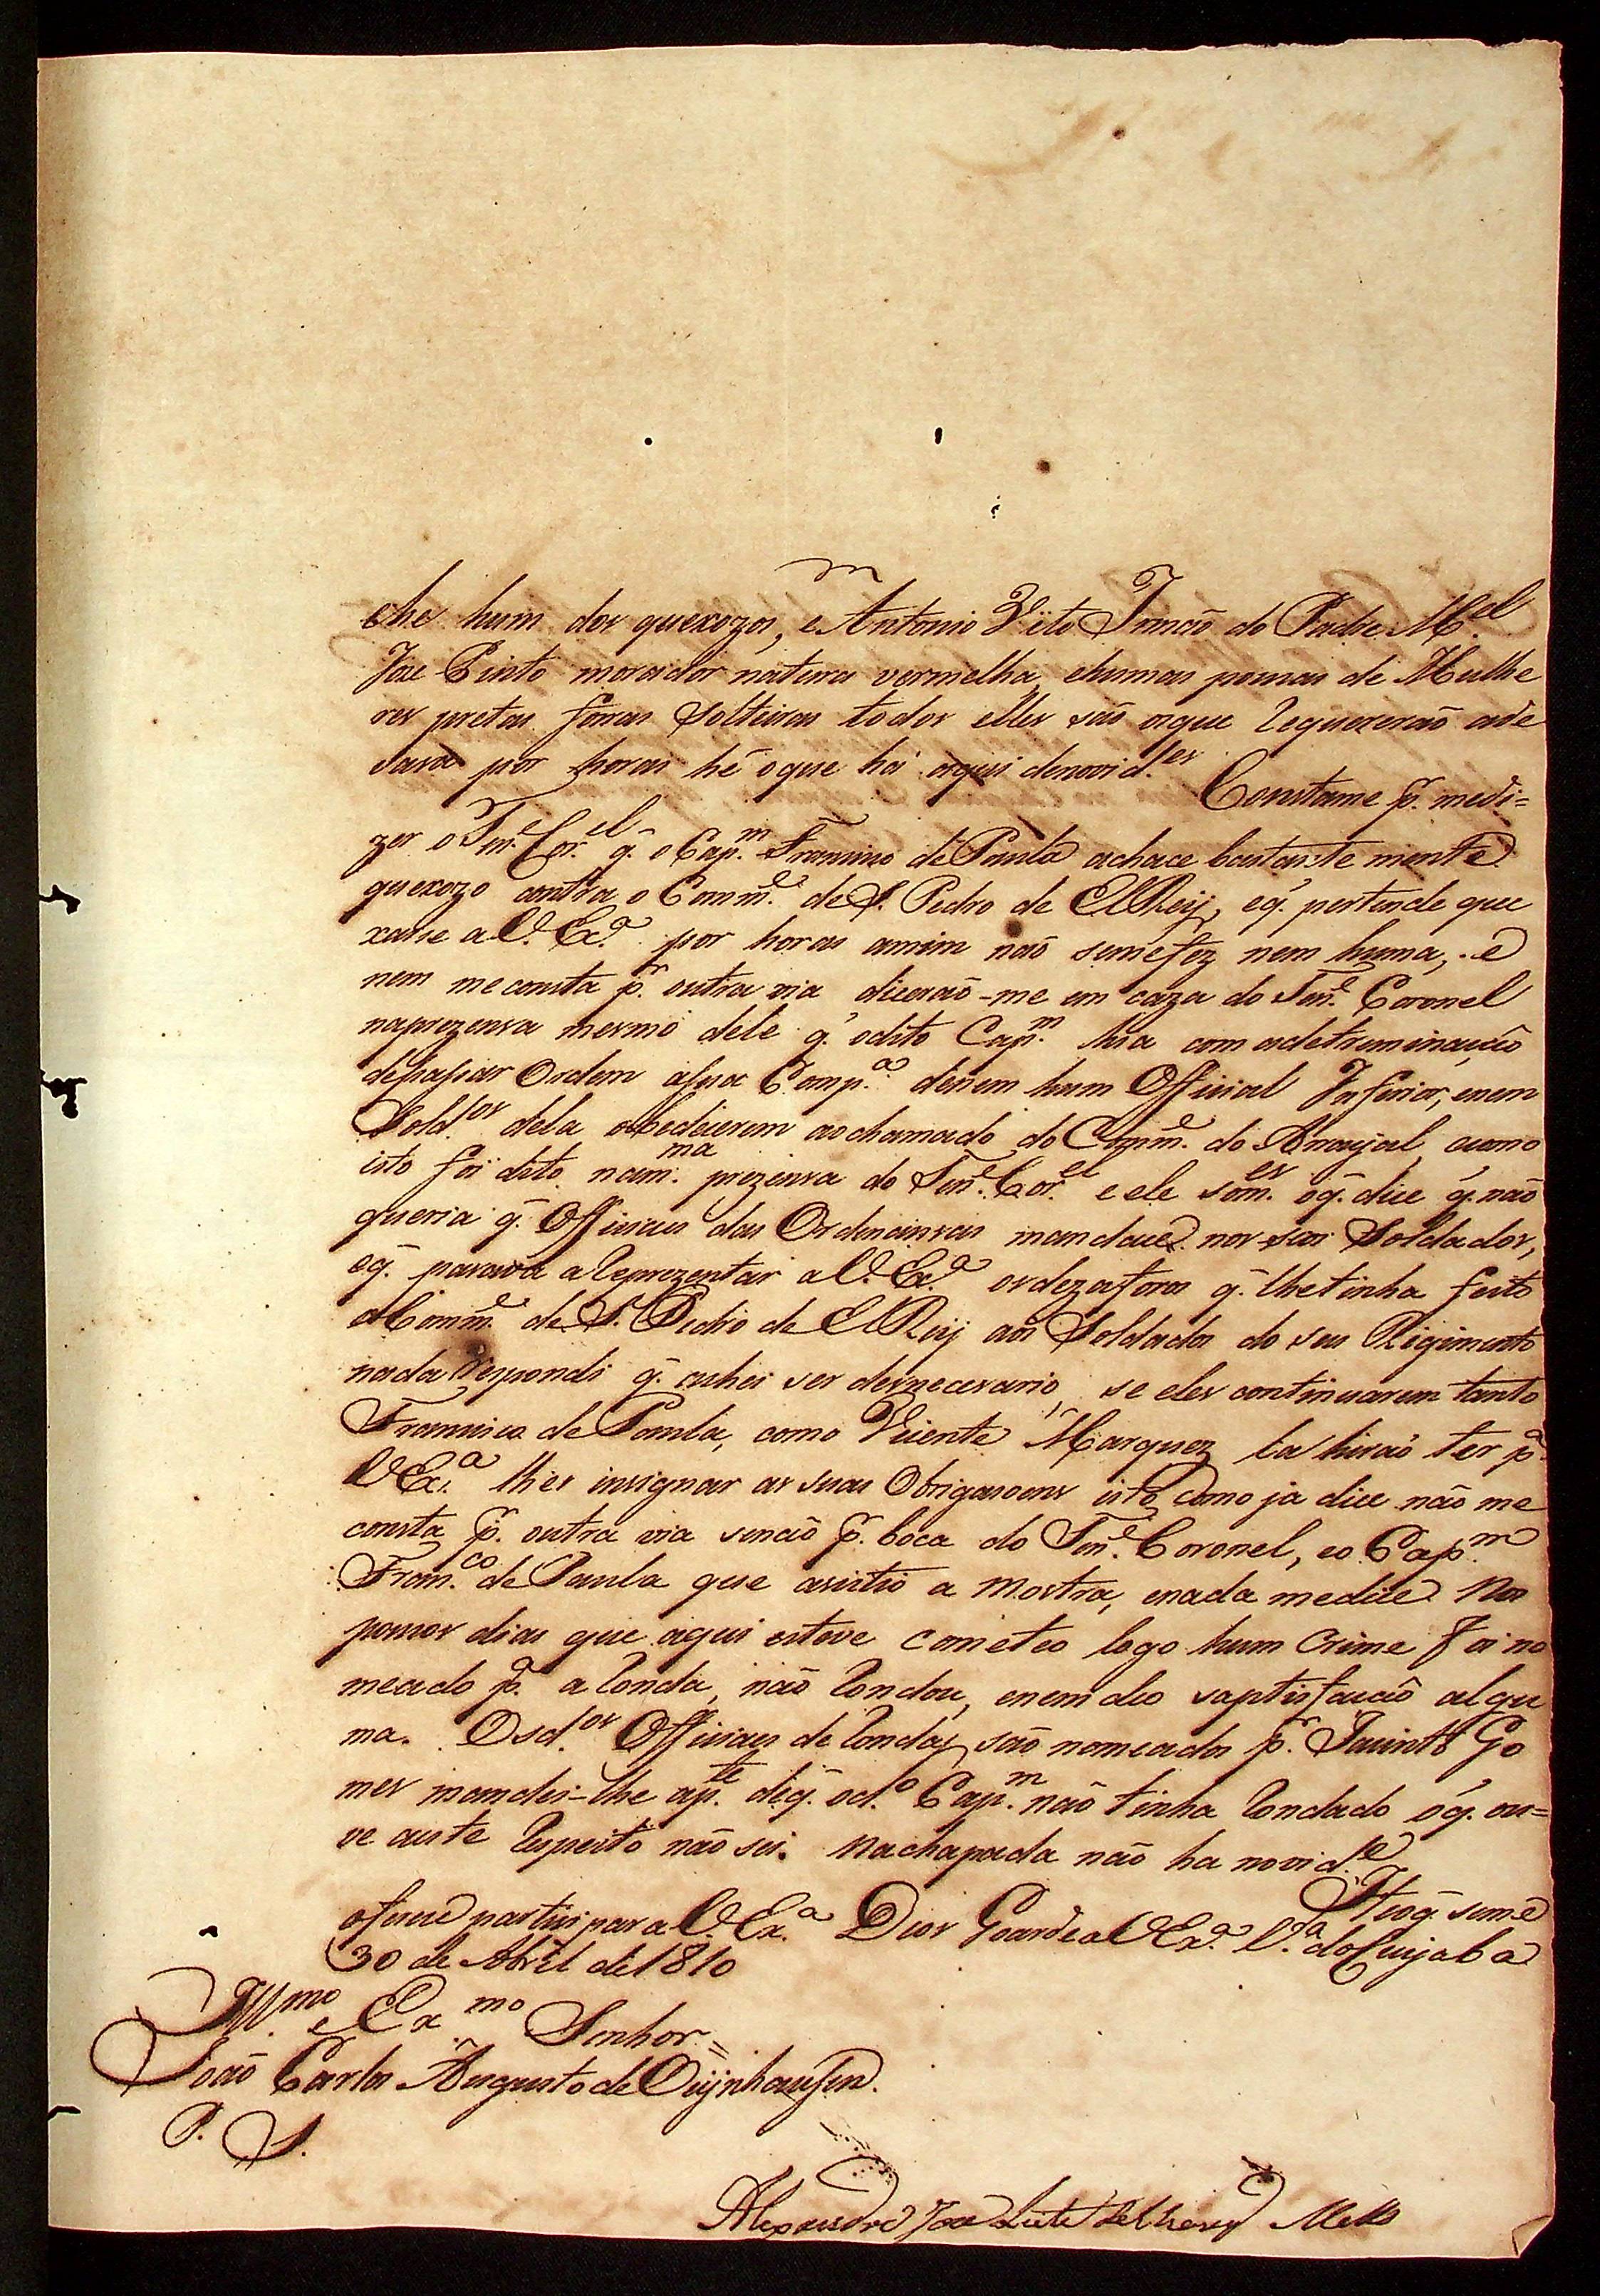 che hum dos quexozos, e Antonio Vito Irmaõ do Padre M.el
Joze Pinto morador natera vermelha, ehumas poucas de Mulhe
res pretas forras Solteiras todos elles saõ oque Requererão ade
vasa por horas hé oque há aqui denovid.es
Constame p.r medi=
zer o Ten.e Cor.el q̃ o Cap.m Francisco de Paula achace bastante mente
quexozo contra o Comm.e de S. Pedro de ElReij, eq̃. pertende que
xarse a V. Ex.a por horas amim naõ semefez nem huma, e
nem meconsta p.r outra via diceraõ-me em caza do Ten.e Coronel
naprezensa mesmo dele q̃ odito Cap.m hia com adetreminaçaõ
depasar Ordem asua Comp.a denem hum Official Inferior, enem
Sold.os dela obedecerem aochamado do Comm.e do Arraijal, ecomo
isto foi dito nam.ma prezensa do Ten.e Cor.el e ele som.es oq̃. dice q̃. naõ
queria q̃. Officiaes das Ordenansas mandace nos seus Soldados,
eq̃. parava a Reprezentar a V. Ex.a os dezaforos q̃. lhetinha feito
oComm.e de S. Pedro de ElReij aos Soldados do seu Regimento
nada Respondi q̃. achei ser desnecesario, se eles continuarem tanto
Francisco de Paula, como Vicente Marquez la hiraõ ter p.a
V Ex.a lhes insignar as suas Obrigasoens isto como ja dice não me
consta p.r outra via senaõ p.r boca do Ten.e Coronel, eo Cap.m
Fran.co de Paula que asistio a Mostra, enada medice Nos
poucos dias que aqui esteve cometeo logo hum Crime Foi no
meado p.a a Ronda, não Rondou, enem deo saptisfaçaõ algu
ma. Osd.os Officiaes de Rondas saõ nomeados p.r Jacinto Go
mes mandei-lhe ap.te deq̃. od.o Cap.m não tinha Rondado oq̃. ou=
ve aeste Respeito não sei. Nachapada não ha novid.e
Heoq̃ seme
oferece partisipar a V. Ex.a Deos Goarde a V Ex.a V.a do Cuijabá
30 de Abril de 1810
Ill.mo e Ex.mo Senhor=
João Carlos Augusto de Oijnhausen.
P. S.
Alexandre Joze Leite de Mello